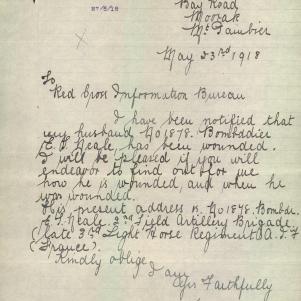 Bay Road
Moorak
Mt Gambier
27/5/18
May 23rd 1918
To
Red Cross Information Bureau
I have been notified that
my husband No 1878. Bombadier
E. J. Neale, has been wounded.
I will be pleased if you will
endeavor to find out for me
how he is wounded, and when he
was wounded.
His present address is, No 1878. Bombdr.
E. J. Neale. 3rd Field Artillery Brigade
(late 3rd Light Horse Regiment A.I.F
France).
Kindly oblige
I am
Yrs Faithfully